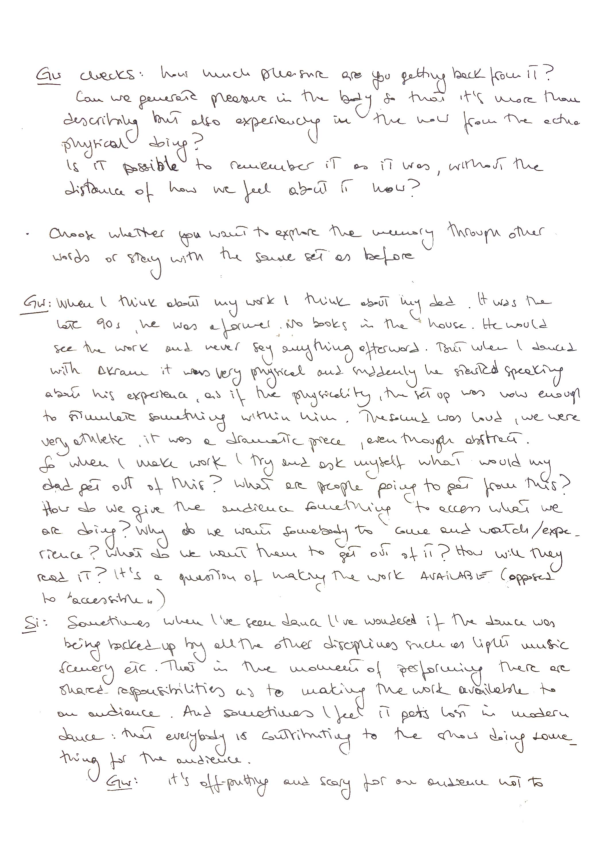 Gw checks: how much pleasure are you getting back from it?
Can we generate pleasure in the body so that it's more than
describing but also experiencing in the now from the actual
physical doing?
Is it possible to remember it as it was, without the
distance of how we feel about it now?
· Choose whether you want to explore the memory through other
words or stay with the same set as before
Gw: When I think about my work I think about my dad. It was the
late 90s, he was a farmer. No books in the house. He would
see the work and never say anything afterword. But when I danced
with Akram it was very physical and suddenly he started speaking
about his experience, as if the physicality, the set up was now enough
to stimulate something within him. The sound was loud, we were
very athletic, it was a dramatic piece, even though abstract.
So when I make work I try and ask myself what would my
dad get out of this? What are people going to get from this?
How do we give the audience something to access what we
are doing? Why do we want somebody to come and watch/expe-
rience? What do we want them to get out of it? How will they
read it? It's a question of making the work AVAILABLE (opposed
to "accessible")
Si: Sometimes when I've seen dance I've wondered if the dance was
being backed up by all the other disciplines such as light music
scenery etc. That in the moment of performing there are
shared responsibilities as to making the work available to
an audience. And sometimes I feel it gets lost in modern
dance: that everybody is contributing to the show doing some-
thing for the audience.
Gw: it's off-putting and scary for an audience not to